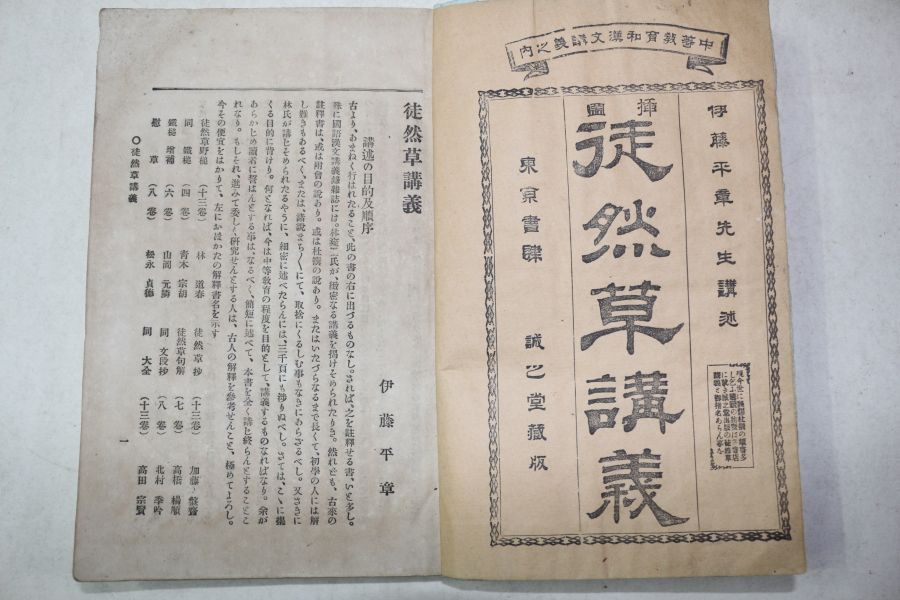 中等敎育和漢文講義之內
伊藤平章先生講述
挿圖
徒然草講義
東京書肆 誠之堂藏版
徒然草講義
講述の目的及順序
伊藤平章
古より、あまねく行はれたること、此の書の右に出づるものなし。されば、之を註釋せる書、いと多し。
殊に國語漢文講義錄雜誌には、林甕臣氏が、緻密なる講義を揭けそめられたりき。然れども、古來の
註釋書は、或は附會の說あり。或は杜撰の說あり。またはいたづらなるまで長くて、初學の人には解
し難きもあるべく、または、諸說まち〱にて、取捨にくるしむ事もなきにあらざるべし。又さきに
林氏が講じそめられたるやうに、細密に述べたらんには、三千頁にも涉りぬべし。さては、こゝに揭
くる目的に背けり。何となれば、今は中等敎育の程度を目的として、講義するものなればなり。余が
あらかじめ讀者に誓はんとする事は、なるべく、簡短に述べて、本書を全く講じ終らんとすることこ
れなり。もしそれ、進みて委しく硏究せんとする人は、古人の解釋を參考せんこと、極めてよろし。
今その便宜をはかりて、左におほかたの解釋書名を示す
徒然草野槌 (十三卷) 林 道春 徒然草抄 (十三卷) 加藤 盤齋
同 鐵槌 (四卷) 靑木 宗胡 徒然草句解 (七卷) 高橋 楊順
鐵槌 增補 (六卷) 山岡 元隣 同 文段抄 (八卷) 北村 季吟
慰 草 (八卷) 松永 貞德 同 大全 (十三卷) 高田 宗賢
○徒然草講義
一